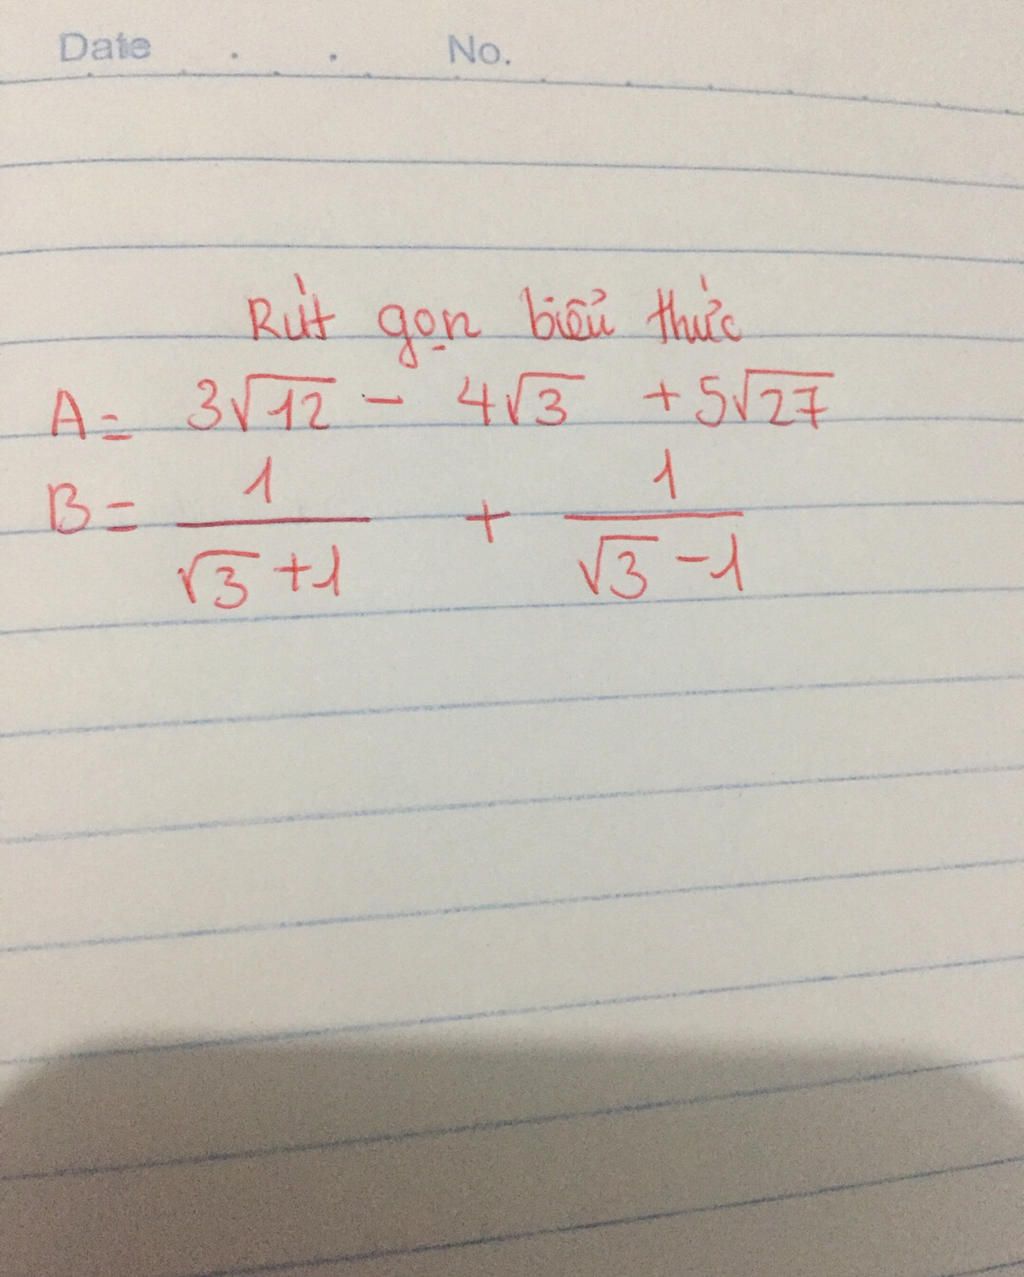 Date . . No.
Rút gọn biểu thức
A = 3√12 - 4√3 + 5√27
B = 1/(√3 + 1) + 1/(√3 - 1)